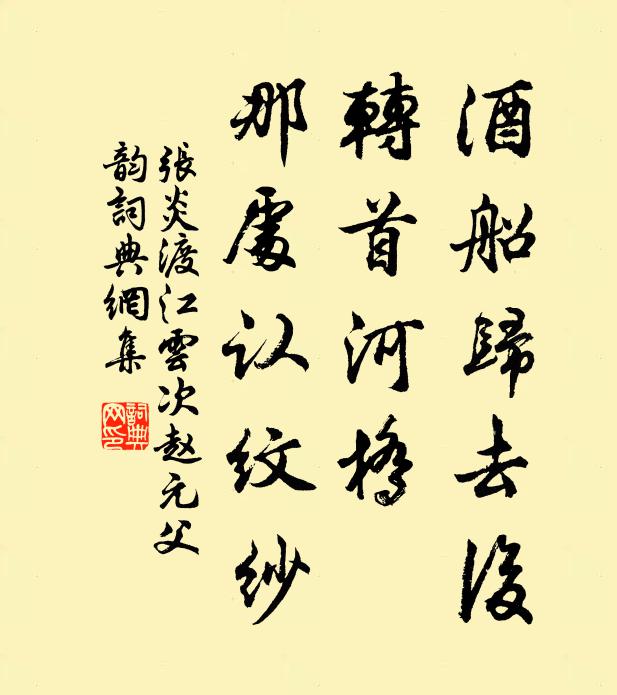 酒船歸去後
轉首河橋
那處认纹纱
張炎渡江雲次赵元父
韵詞典網集
詞典网印